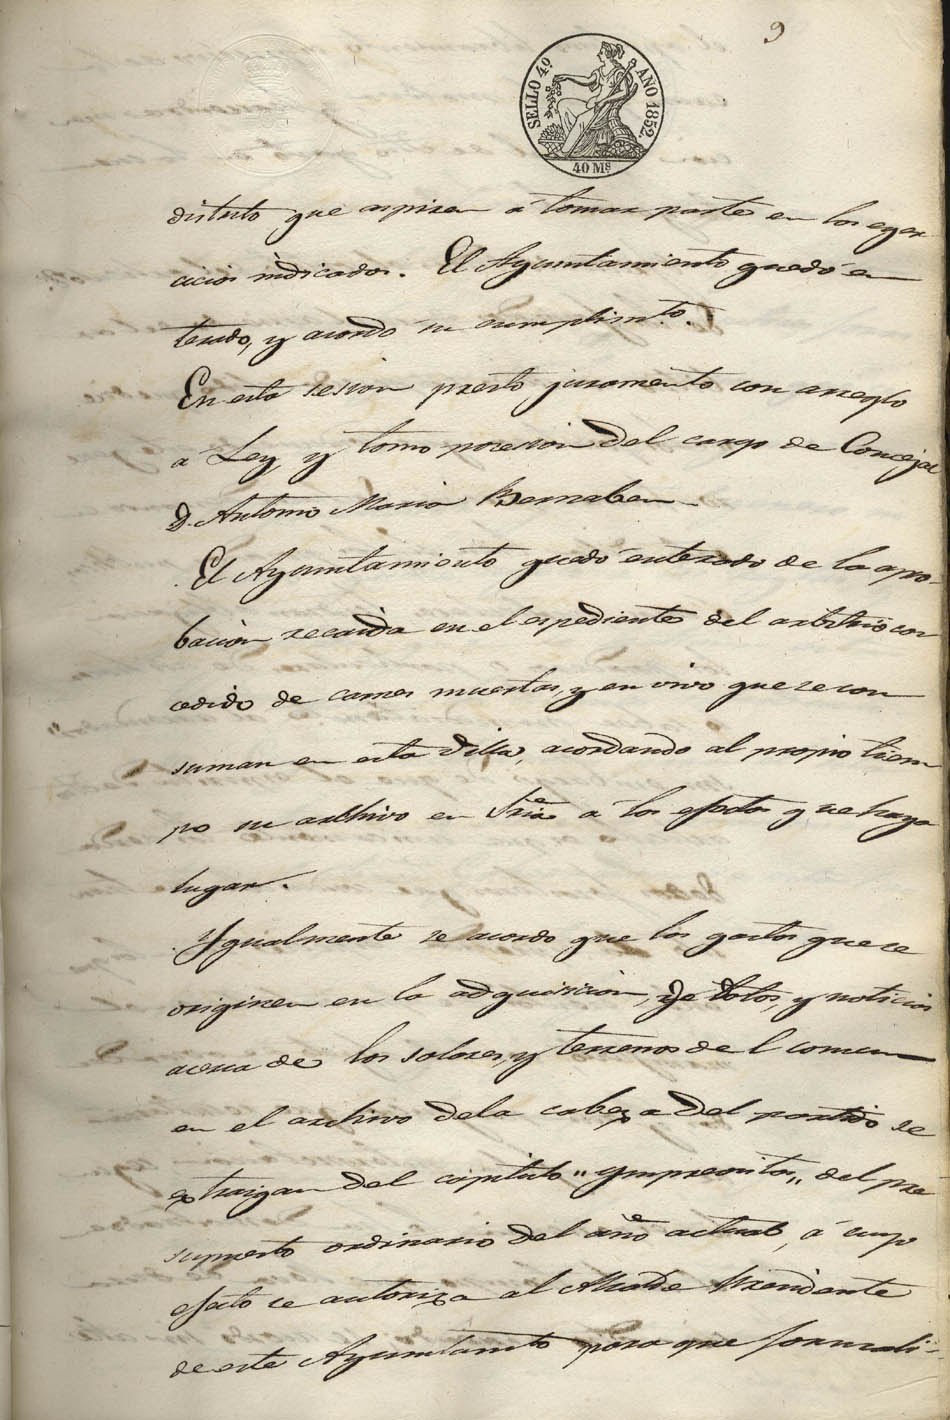 9
SELLO 4º AÑO 1852.
40 Ms
distrito que aspiren á tomar parte en los ejer
cicios indicados. El Ayuntamiento quedó en
terado, y acordó su cumplimto.
En esta sesion prestó juramento con arreglo
a Ley y tomo posesion del cargo de Concejal
D. Antonio Maria Bernabeu
El Ayuntamiento quedó enterado de la apro-
bacion recaida en el espediente del arbitrio con
cedido de carnes muertas, y en vivo que se con
suman en esta Villa, acordando al propio tiem
po su archivo en Sria á los efectos q re haya
lugar.
Ygualmente se acordo que los gastos que se
originen en la adquisicion, de datos, y noticias
acerca de los solares, y terrenos del comun
en el archivo dela cabeza del partido se
extraigan del capitulo "ymprevistos" del pre
supuesto ordinario del año actual, á cuyo
efecto se autoriza al Alcalde Presidente
de este Ayuntamto para que formali-